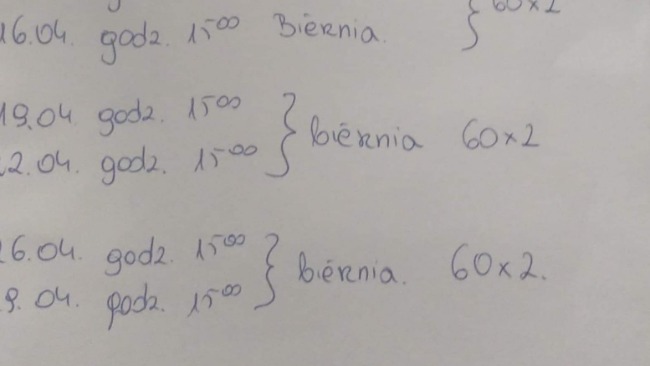 16.04. godz. 15⁰⁰ Biernia. } 60x2
19.04 godz. 15⁰⁰
2.04. godz. 15⁰⁰ } biernia 60x2
6.04. godz. 15⁰⁰
9.04. godz. 15⁰⁰ } biernia. 60x2.